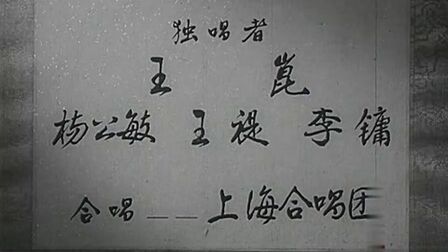 独唱者
王 崑
杨公敏 王 禔 李 镛
合唱——上海合唱团